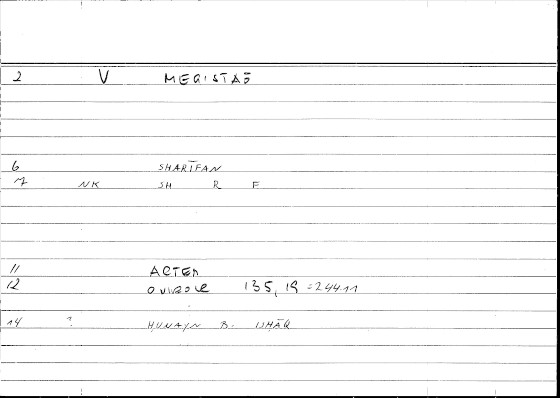 2 V MEGISTAS
6 SHARĪFAN
7 NK SH R F
11 ACTEA
12 135, 19 = 24411
14 ? HUNAYN B. ISHĀQ